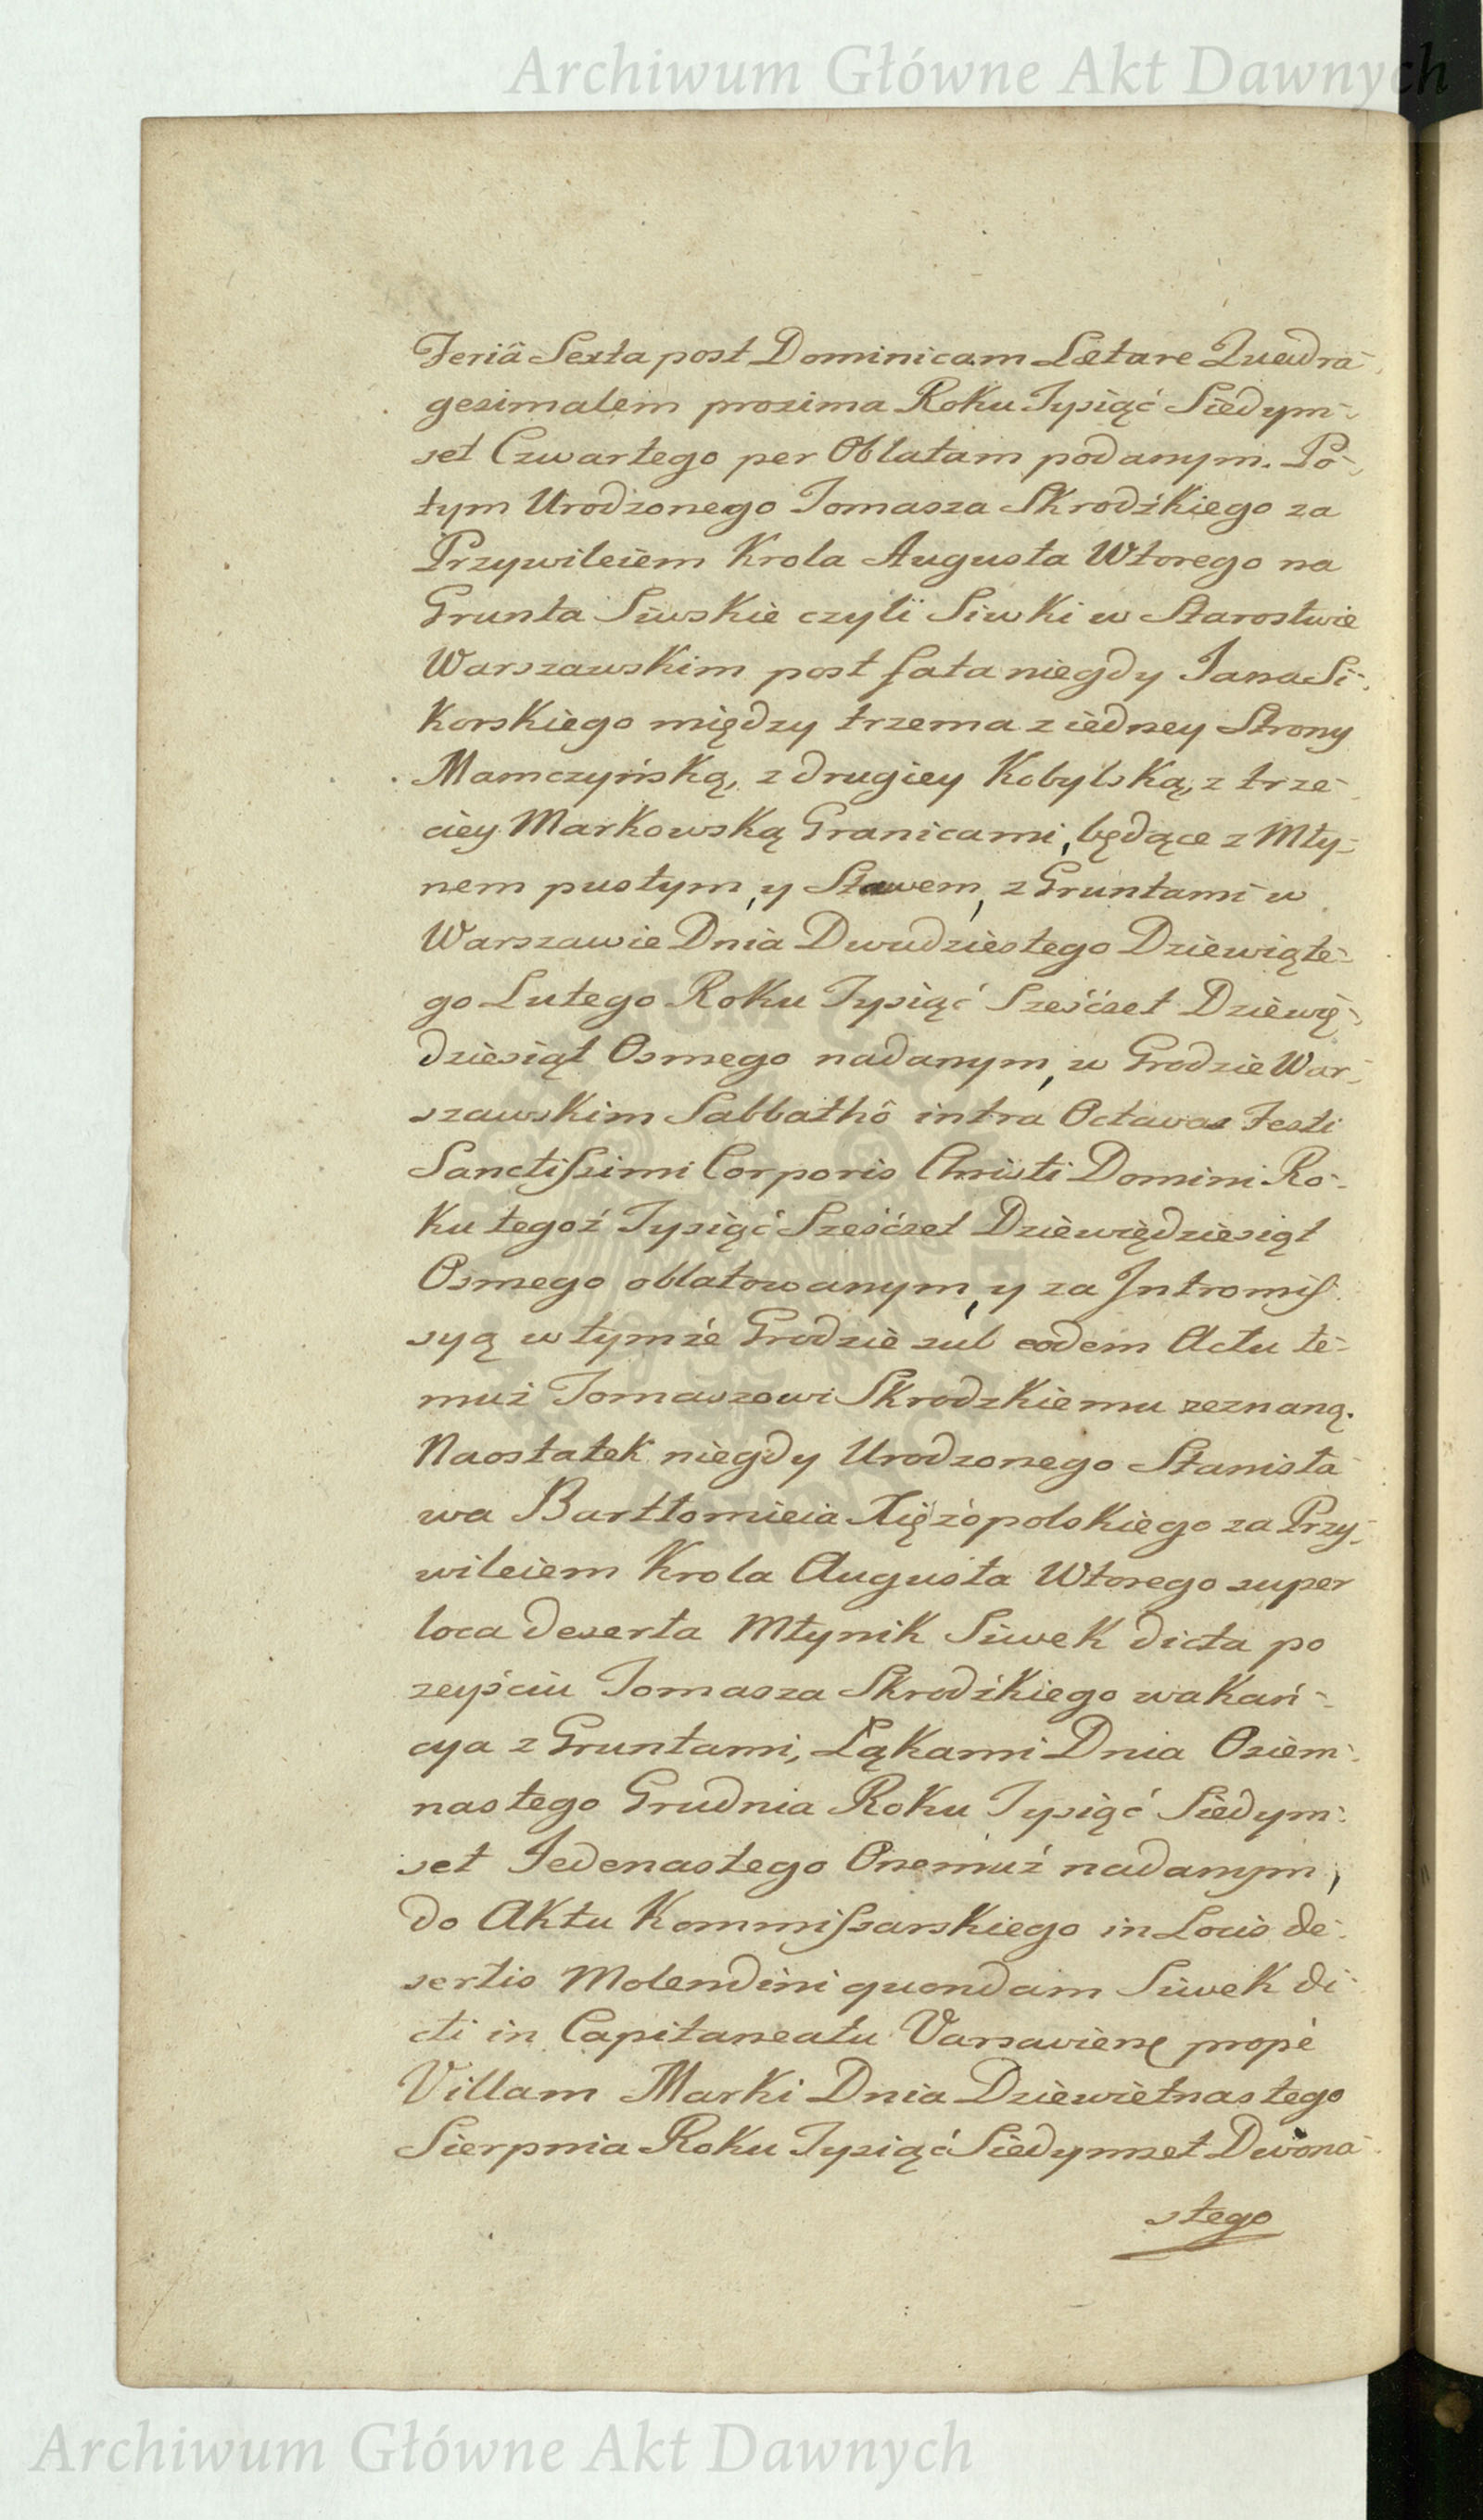 Archiwum Główne Akt Dawnych
Feriâ Sexta post Dominicam Lætare Quadra-
gesimalem proxima Roku Tysiąć Siedym-
set Czwartego per Oblatam podanym. Po-
tym Urodzonego Tomasza Skrodźkiego za
Przywileiem Krola Augusta Wtorego na
Grunta Siwskie czyli Siwki w Starostwie
Warszawskim post fata niegdy Jana Si-
korskiego między trzema z iedney Strony
Mamczyńską, z drugiey Kobylską, z trze-
ciey Markowską Granicami, będące z Mły-
nem pustym, y Stawem, z Gruntami w
Warszawie Dnia Dwudziestego Dziewiąte-
go Lutego Roku Tysiąć Sześćset Dziewię-
dziesiąt Osmego nadanym, w Grodzie War-
szawskim Sabbathô intra Octavas Festi
Sanctissimi Corporis Christi Domini Ro-
ku tegoż Tysiąć Sześćset Dziewiędziesiąt
Osmego oblatowanym, y za Intromis-
syą w tymże Grodzie sub eodem Actu te-
muż Tomaszowi Skrodzkiemu zeznaną.
Naostatek niegdy Urodzonego Stanisła-
wa Bartłomieia Xiężopolskiego za Przy-
wileiem Krola Augusta Wtorego super
loca deserta Młynik Siwek dicta po
zeyściu Tomasza Skrodźkiego wakań-
cya z Gruntami, Łąkami Dnia Osiem-
nastego Grudnia Roku Tysiąć Siedym-
set Jedenastego Onemuż nadanym,
do Aktu Kommissarskiego in Locis de-
sertis Molendini quondam Siwek di-
cti in Capitaneatu Varsaviens propè
Villam Marki Dnia Dziewietnastego
Sierpnia Roku Tysiąć Siedymset Dwona-
stego
Archiwum Główne Akt Dawnych